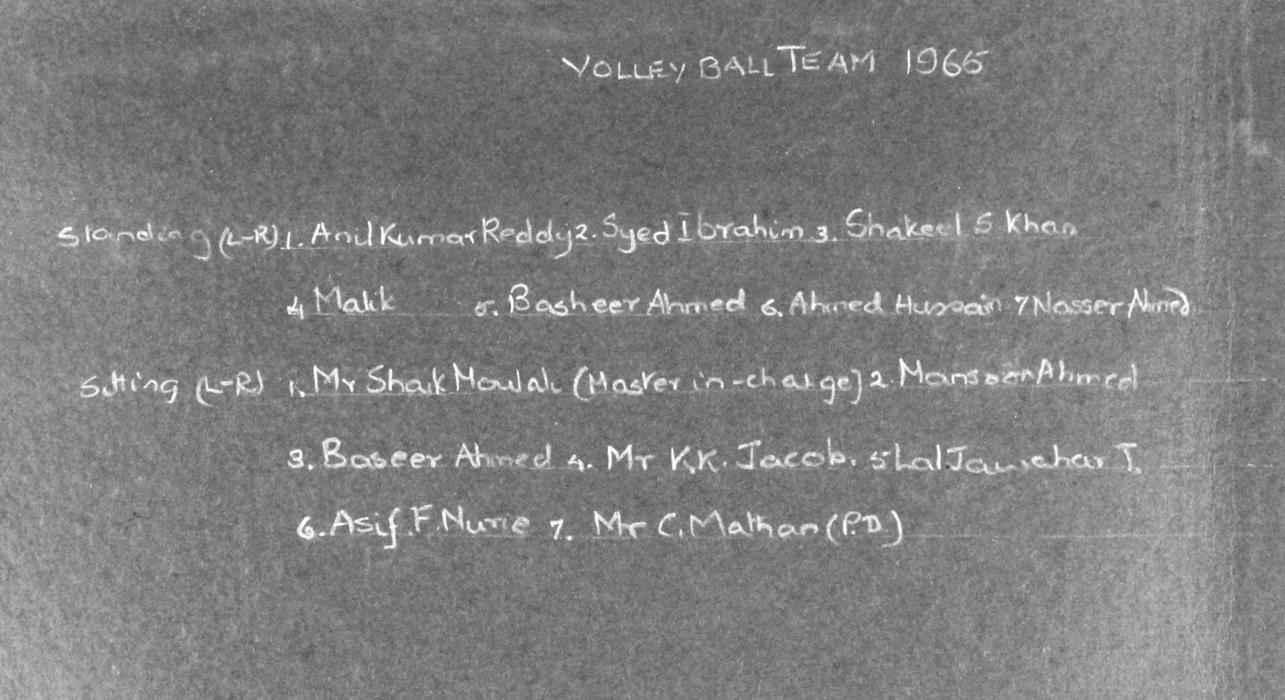 VOLLEY BALL TEAM 1965
Standing (L-R) 1. Anil Kumar Reddy 2. Syed Ibrahim 3. Shakeel S Khan
4 Malik 5. Basheer Ahmed 6. Ahmed Hussain 7 Nasser Ahmed
Sitting (L-R) 1. Mr Shaik Moulali (Master in-charge) 2. Mansoor Ahmed
3. Baseer Ahmed 4. Mr K.K. Jacob. 5 Lal Jawahar T.
6. Asif. F. Nurie 7. Mr C. Mathan (P.D.)